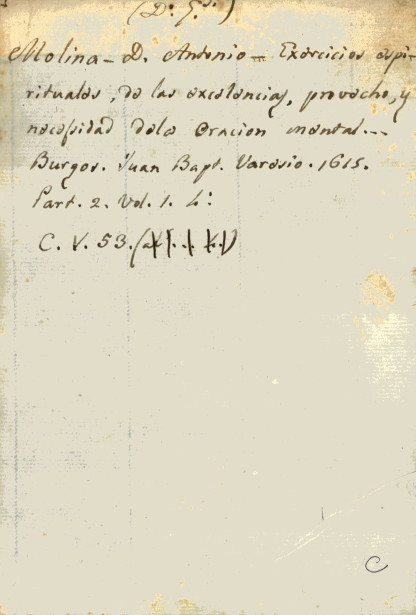 (D. G.)
Molina - D. Antonio - Exercicios espi-
rituales, de las excelencias, provecho, y
necessidad dela Oracion mental...
Burgos. Juan Bapt. Varesio. 1615.
Part. 2. Vol. 1. 4º
C. V. 53.
C